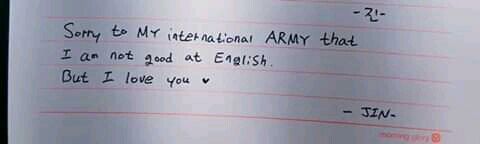 -진-
Sorry to My international ARMY that
I am not good at English.
But I love you ♥
- JIN-
morning glory